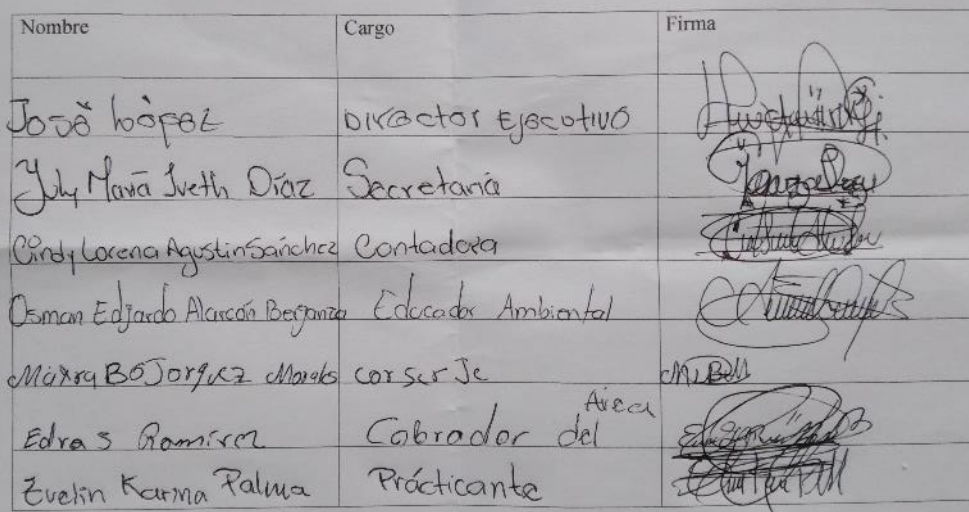 Nombre Cargo Firma
José López Director Ejecotivo
Yuly María Iveth Díaz Secretaria
Cindy Lorena Agustin Sánchez Contadora
Osman Edjardo Alarcón Berganza Educador Ambiental
BOJorquez Morales conserje
Edras Ramírez Cobrador del Area
Evelin Karina Palma Prácticante